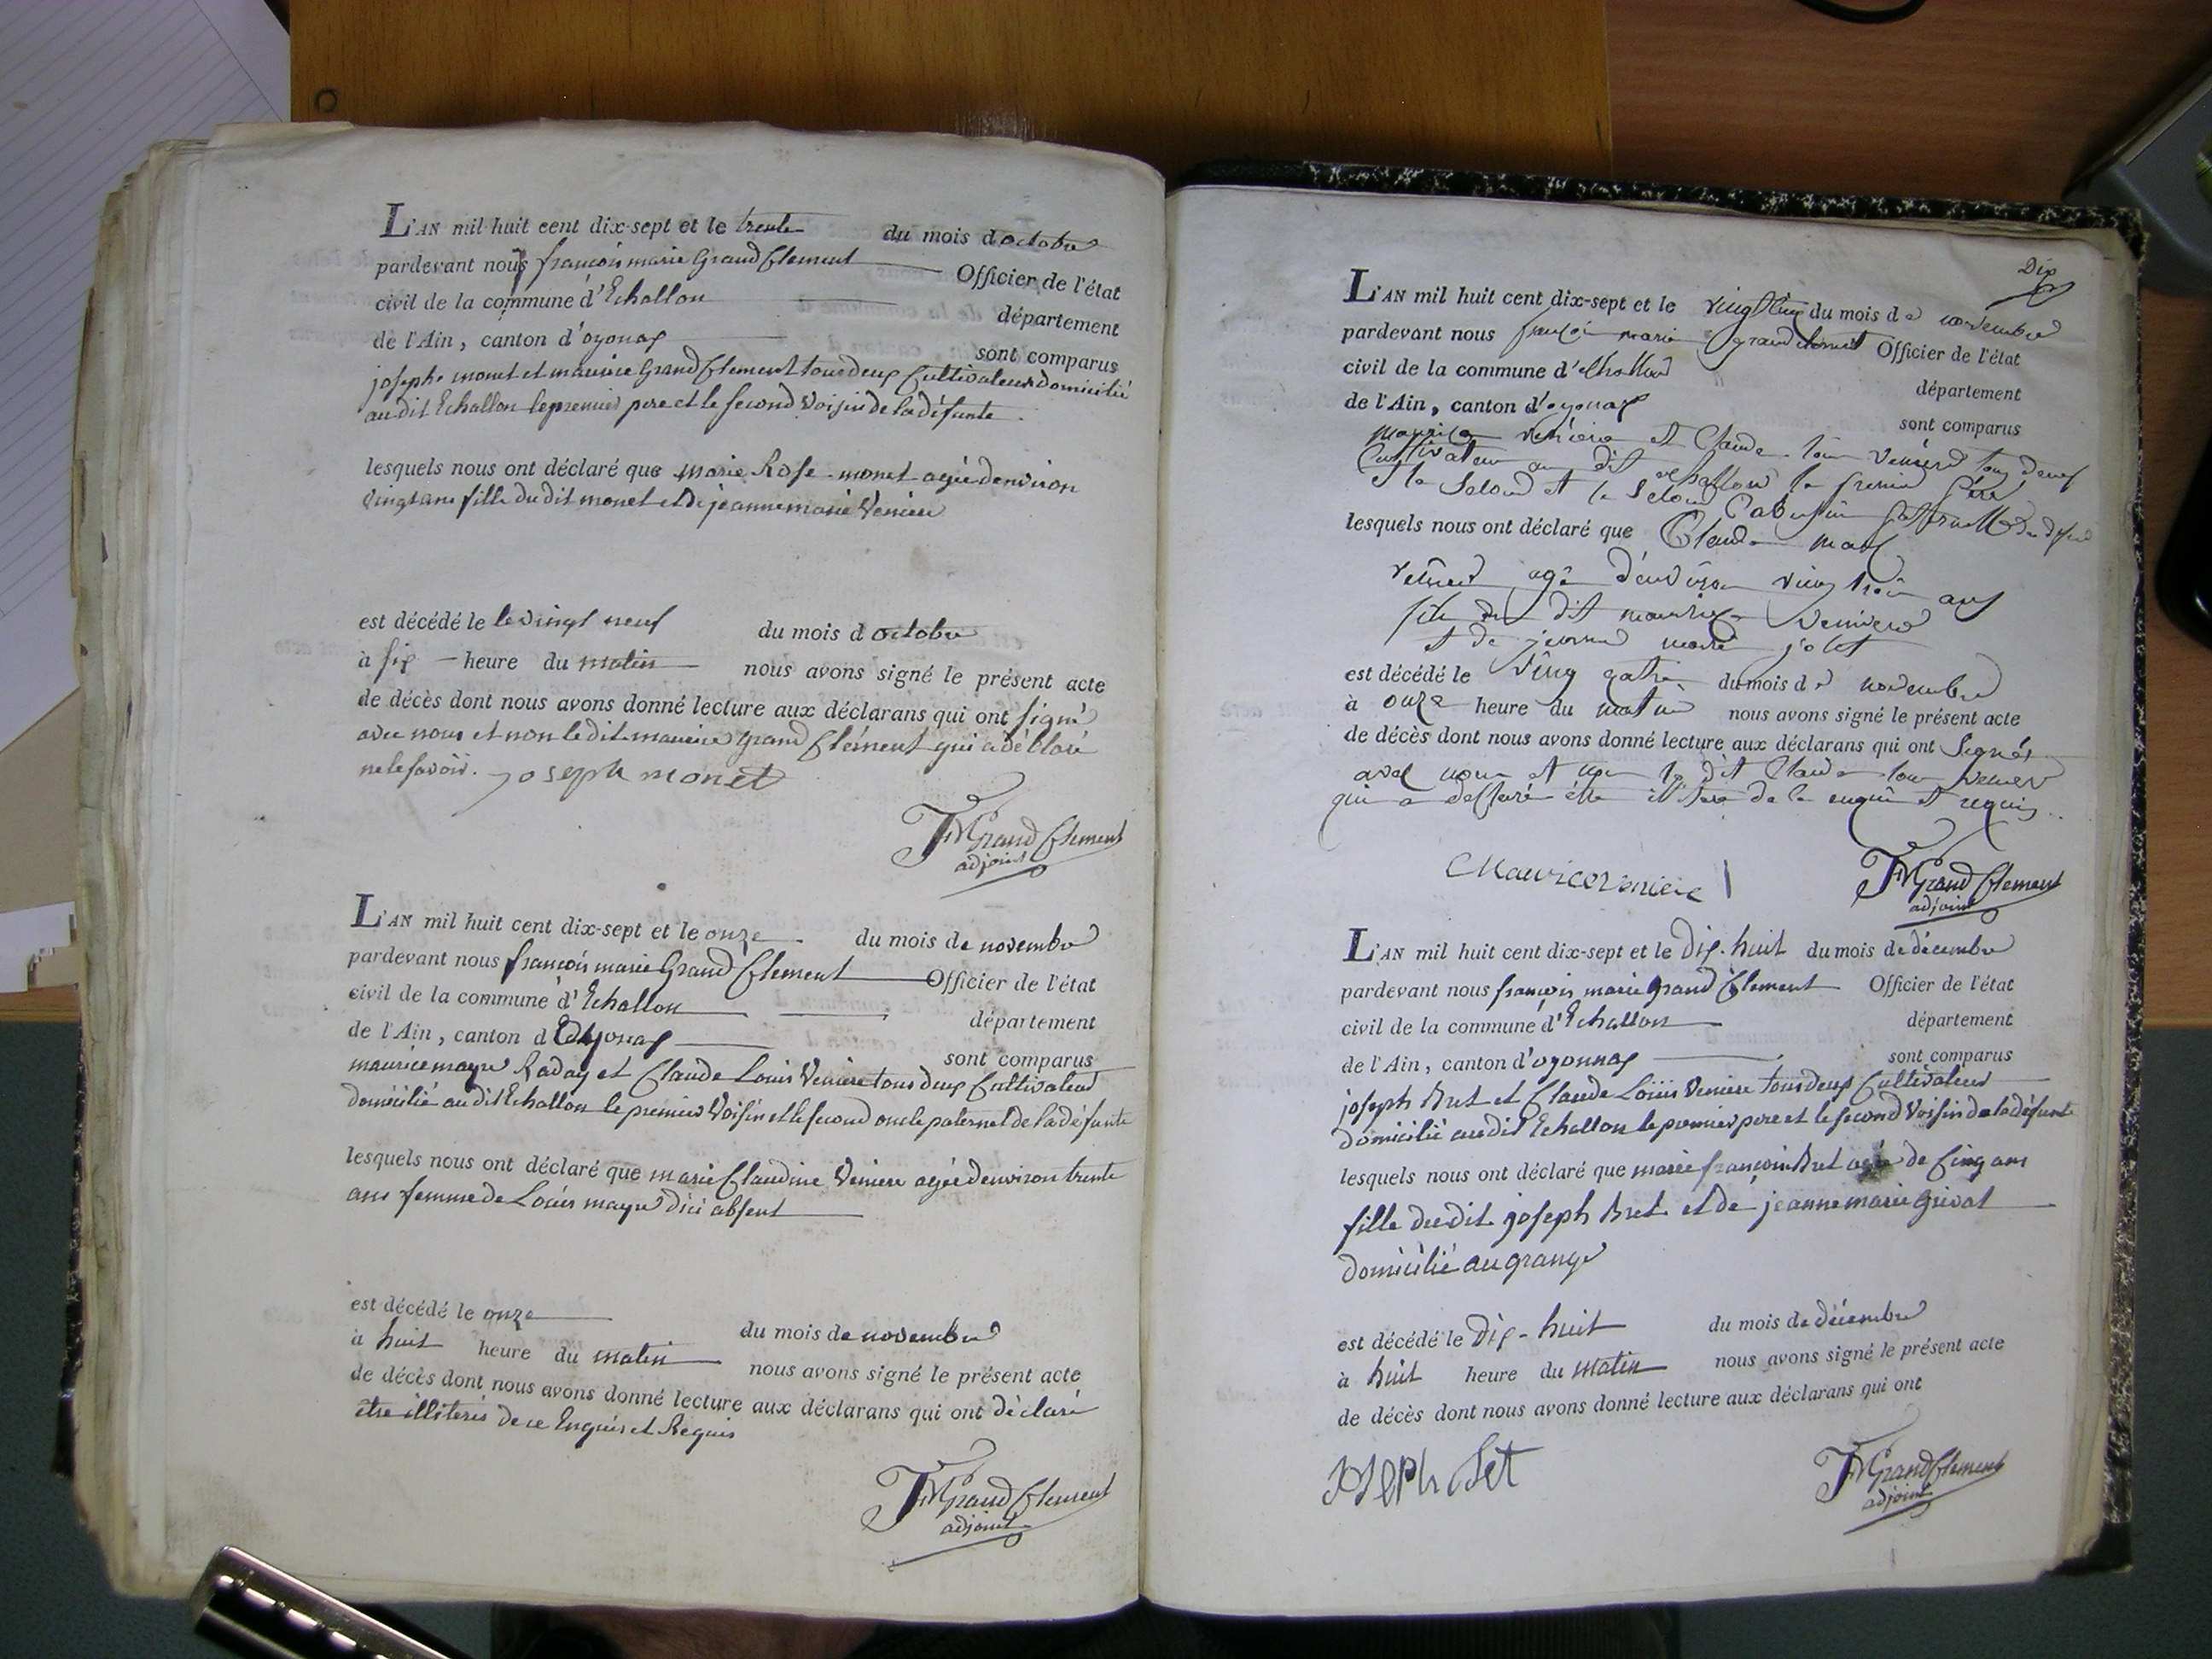 L'AN mil huit cent dix-sept et le trente du mois d octobre
pardevant nous françois marie Grand Clement Officier de l'état
civil de la commune d'Echallon département
de l'Ain, canton d'oyonax sont comparus
joseph monet et maurice Grand Clement tous deux Cultivateurs domicilié
au dit Echallon le premier pere et le second Voisin de la défunte
lesquels nous ont déclaré que marie Rose monet agée denviron
vingt ans fille du dit monet et De jeanne marie Veniere
est décédé le le vingt neuf du mois d octobre
à six heure du matin nous avons signé le présent acte
de décès dont nous avons donné lecture aux déclarans qui ont signé
avec nous et non le dit maurice Grand Clément qui a déclaré
ne le savoir. joseph monet
FMGrand Clement
adjoint
L'AN mil huit cent dix-sept et le onze du mois de novembre
pardevant nous françois marie Grand Clement Officier de l'état
civil de la commune d'Echallon département
de l'Ain, canton d Oyonax sont comparus
maurice mayre Raday et Claude Louis Veniere tous deux Cultivateur
domicilié au dit Echallon le premier Voisin et le second oncle paternel de la défunte
lesquels nous ont déclaré que marie Claudine Veniere agée denviron trente
ans femme de Louis mayre dici absent
est décédé le onze du mois de novembre
à huit heure du matin nous avons signé le présent acte
de décès dont nous avons donné lecture aux déclarans qui ont déclaré
être illiteris de ce Enquis et Requis
FMGrand Clement
adjoint
Dix
L'AN mil huit cent dix-sept et le du mois de novembre
pardevant nous françoi marie grand clement Officier de l'état
civil de la commune d'echallon département
de l'Ain, canton d'oyonax sont comparus
maurice veniere et Claude loui veniere tous deux
Cultivateur au dit echallon le premier père
et le Selond paternelle du defunt
lesquels nous ont déclaré que Claude marie
veniere agé d'environ ving trois ans
fils du dit maurice veniere
et de jeanne marie jolet
est décédé le ving qatre du mois de novembre
à onze heure du matin nous avons signé le présent acte
de décès dont nous avons donné lecture aux déclarans qui ont Signé
avec nous et non le dit Claude loui venier
qui a declaré être de ce enquis et requis
Maurice veniere
FMGrand Clement
adjoint
L'AN mil huit cent dix-sept et le Dix-huit du mois de décembre
pardevant nous françois marie Grand Clement Officier de l'état
civil de la commune d'Echallon département
de l'Ain, canton d'oyonnax sont comparus
joseph Bret et Claude Louis Veniere tous deux Cultivateur
domicilié au dit Echallon le premier pere et le second Voisin de la défunte
lesquels nous ont déclaré que marie françoise Bret agée de Cinq ans
fille du dit joseph Bret et de jeanne marie Grivat
domicilié au grange
est décédé le Dix-huit du mois de décembre
à huit heure du matin nous avons signé le présent acte
de décès dont nous avons donné lecture aux déclarans qui ont
Joseph Bret
FMGrand Clement
adjoint